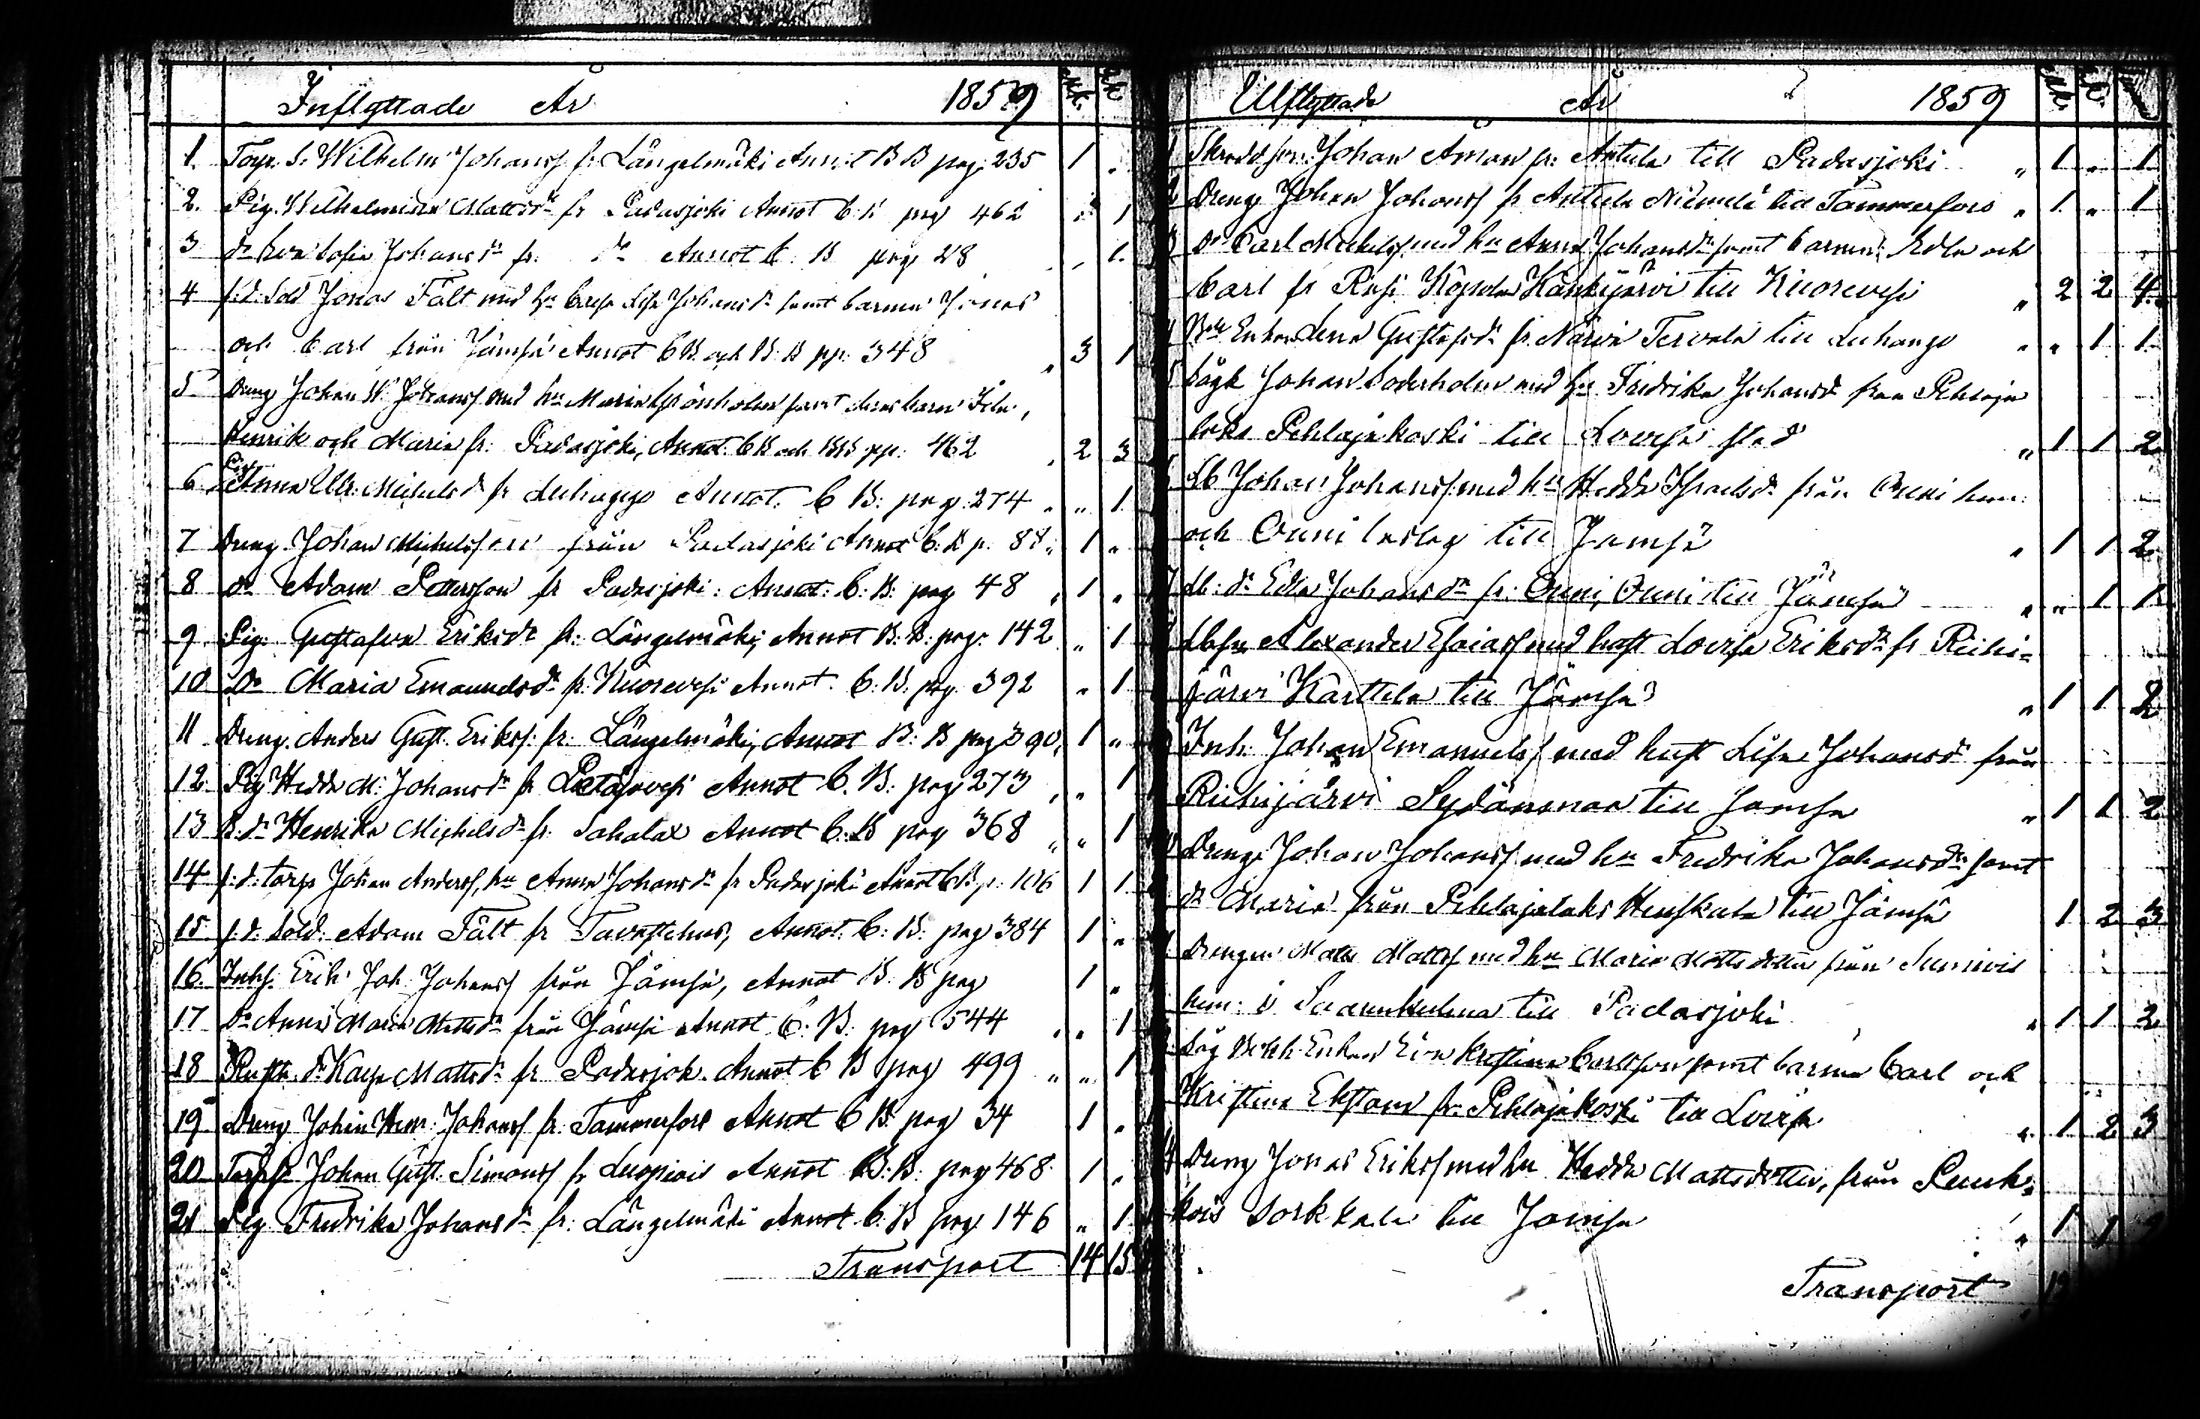 Inflyttade År 1859 Mk. Qk.
1. Torp. S. Wilhelm Johanss fr Längelmäki Annot B B pag. 235 1 "
2. Pig. Wilhelmina Mattsdr fr Padasjoki Annot C. B pag 462 " 1
3 do Eva Sofia Johansdr fr. do Annot C. B pag 28 " 1
4 f.d. Sold Jonas Fält med hu Cajsa Lisa Johansdr samt barnen Jonas
och Carl från Jämsä Annot C B och B. B pp. 348 " 3 1
5 Dreng Johan W. Johanss med hu Maria Grönholm samt deras barn
Henrik och Maria fr. Padasjoki, Annot. C B och B B pp. 462 " 2 3
6 Pig Anna Ulr. Michelsdr fr Luhango Annot. C B. pag. 274 " " 1
7 Dreng. Johan Michelsson från Padasjoki Annot C. B p. 88 " 1 "
8 do Adam Pettersson fr Padasjoki. Annot. C. B. pag 48 " 1 "
9 Pig. Gustafva Eriksdr fr. Längelmäki, Annot B. B. pag. 142 " 1
10 Do Maria Emanuelsdr fr. Kuorevesi Annot. C. B. pag. 392 " 1
11 Dreng. Anders Gust. Erikss. fr. Längelmäki, Annot B. B pag 390 " 1 "
12 Pig Hedda M. Johansdr fr Petäjävesi Annot C. B. pag 273 " " 1
13 B. dr Henrika Michelsdr fr. Sahalax Annot C. B pag 368 " " 1
14 f.d. torp Johan Anderss, hu Anna Johansdr fr Padasjoki Annot C B p. 106 1 1
15 f.d. Sold. Adam Fält fr Tavastehus, Annot. C. B. pag 384 1 "
16. Inhs. Erik Joh. Johanss från Jämsä, Annot B. B pag 1 "
17 Do Anna Maria Mattsdr från Jämsä Annot C. B. pag 544 " " 1
18 dr Kajsa Mattsdr fr Padasjok. Annot C B pag 499 " " 1
19 Dreng Johan Henr. Johanss fr. Tammerfors Annot C B. pag 34 1 "
20 Torps. Johan Gust. Simonss fr Luopiois Annot B. B. pag 468 1 "
21 Pig Fredrika Johansdr fr. Längelmäki Annot C. B pag 146 " 1
Transport 14 15
Utflyttade År 1859
1 Johan Åman fr. Anttila till Padasjoki " 1 " 1
2 Dreng Johan Johanss fr Anttila Niemelä till Tammerfors " 1 " 1
3 do Carl Michelss med hu Anna Johansdr samt barnen Edla och
Carl fr Kankijärvi till Kuorevesi " 2 2 4
4 Enkan Lena Gustafsdr fr. Tervala till Luhango " " 1 1
5 Sågk Johan Söderholm med hu Fredrika Johansdr från Pihlaja
koski till Lovisa stad " 1 1 2
6 Lb Johan Johanss med hu Hedda Israelsdr från Onni hem
och Onni till Jämsä " 1 1 2
7 Lb. dr Edla Johansdr fr. Onni, Onni till Jämsä " " 1 1
Alexander Esaiass med hust Lovisa Eriksdr fr Riihi=
järvi Karttila till Jämsä " 1 1 2
Inh. Johan Emanuelss med hust Lisa Johansdr från
Riihijärvi Sydänmaa till Jämsä " 1 1 2
Dreng Johan Johanss med hu Fredrika Johansdr samt
dr Maria från till Jämsä 1 2 3
Drengen Matts Mattss med hu Maria Mattsdotter från
hem. i till Padasjoki " 1 1 2
Enkan Eva Kristina Carlsson samt barnen Carl och
Kristina Ekstam fr. Pihlajakoski till Lovisa " 1 2 3
Dreng Jonas Erikss med hu Hedda Mattsdotter, från
till Jämsä " 1 1 2
Transport